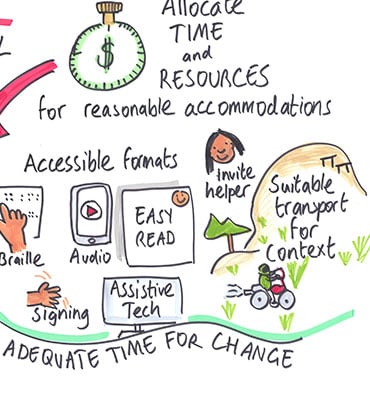 Allocate
TIME
and
RESOURCES
for reasonable accommodations
Accessible formats
Invite
helper
Suitable
transport
for
Context
EASY
READ
Braille
Audio
Signing
Assistive
Tech
ADEQUATE TIME FOR CHANGE